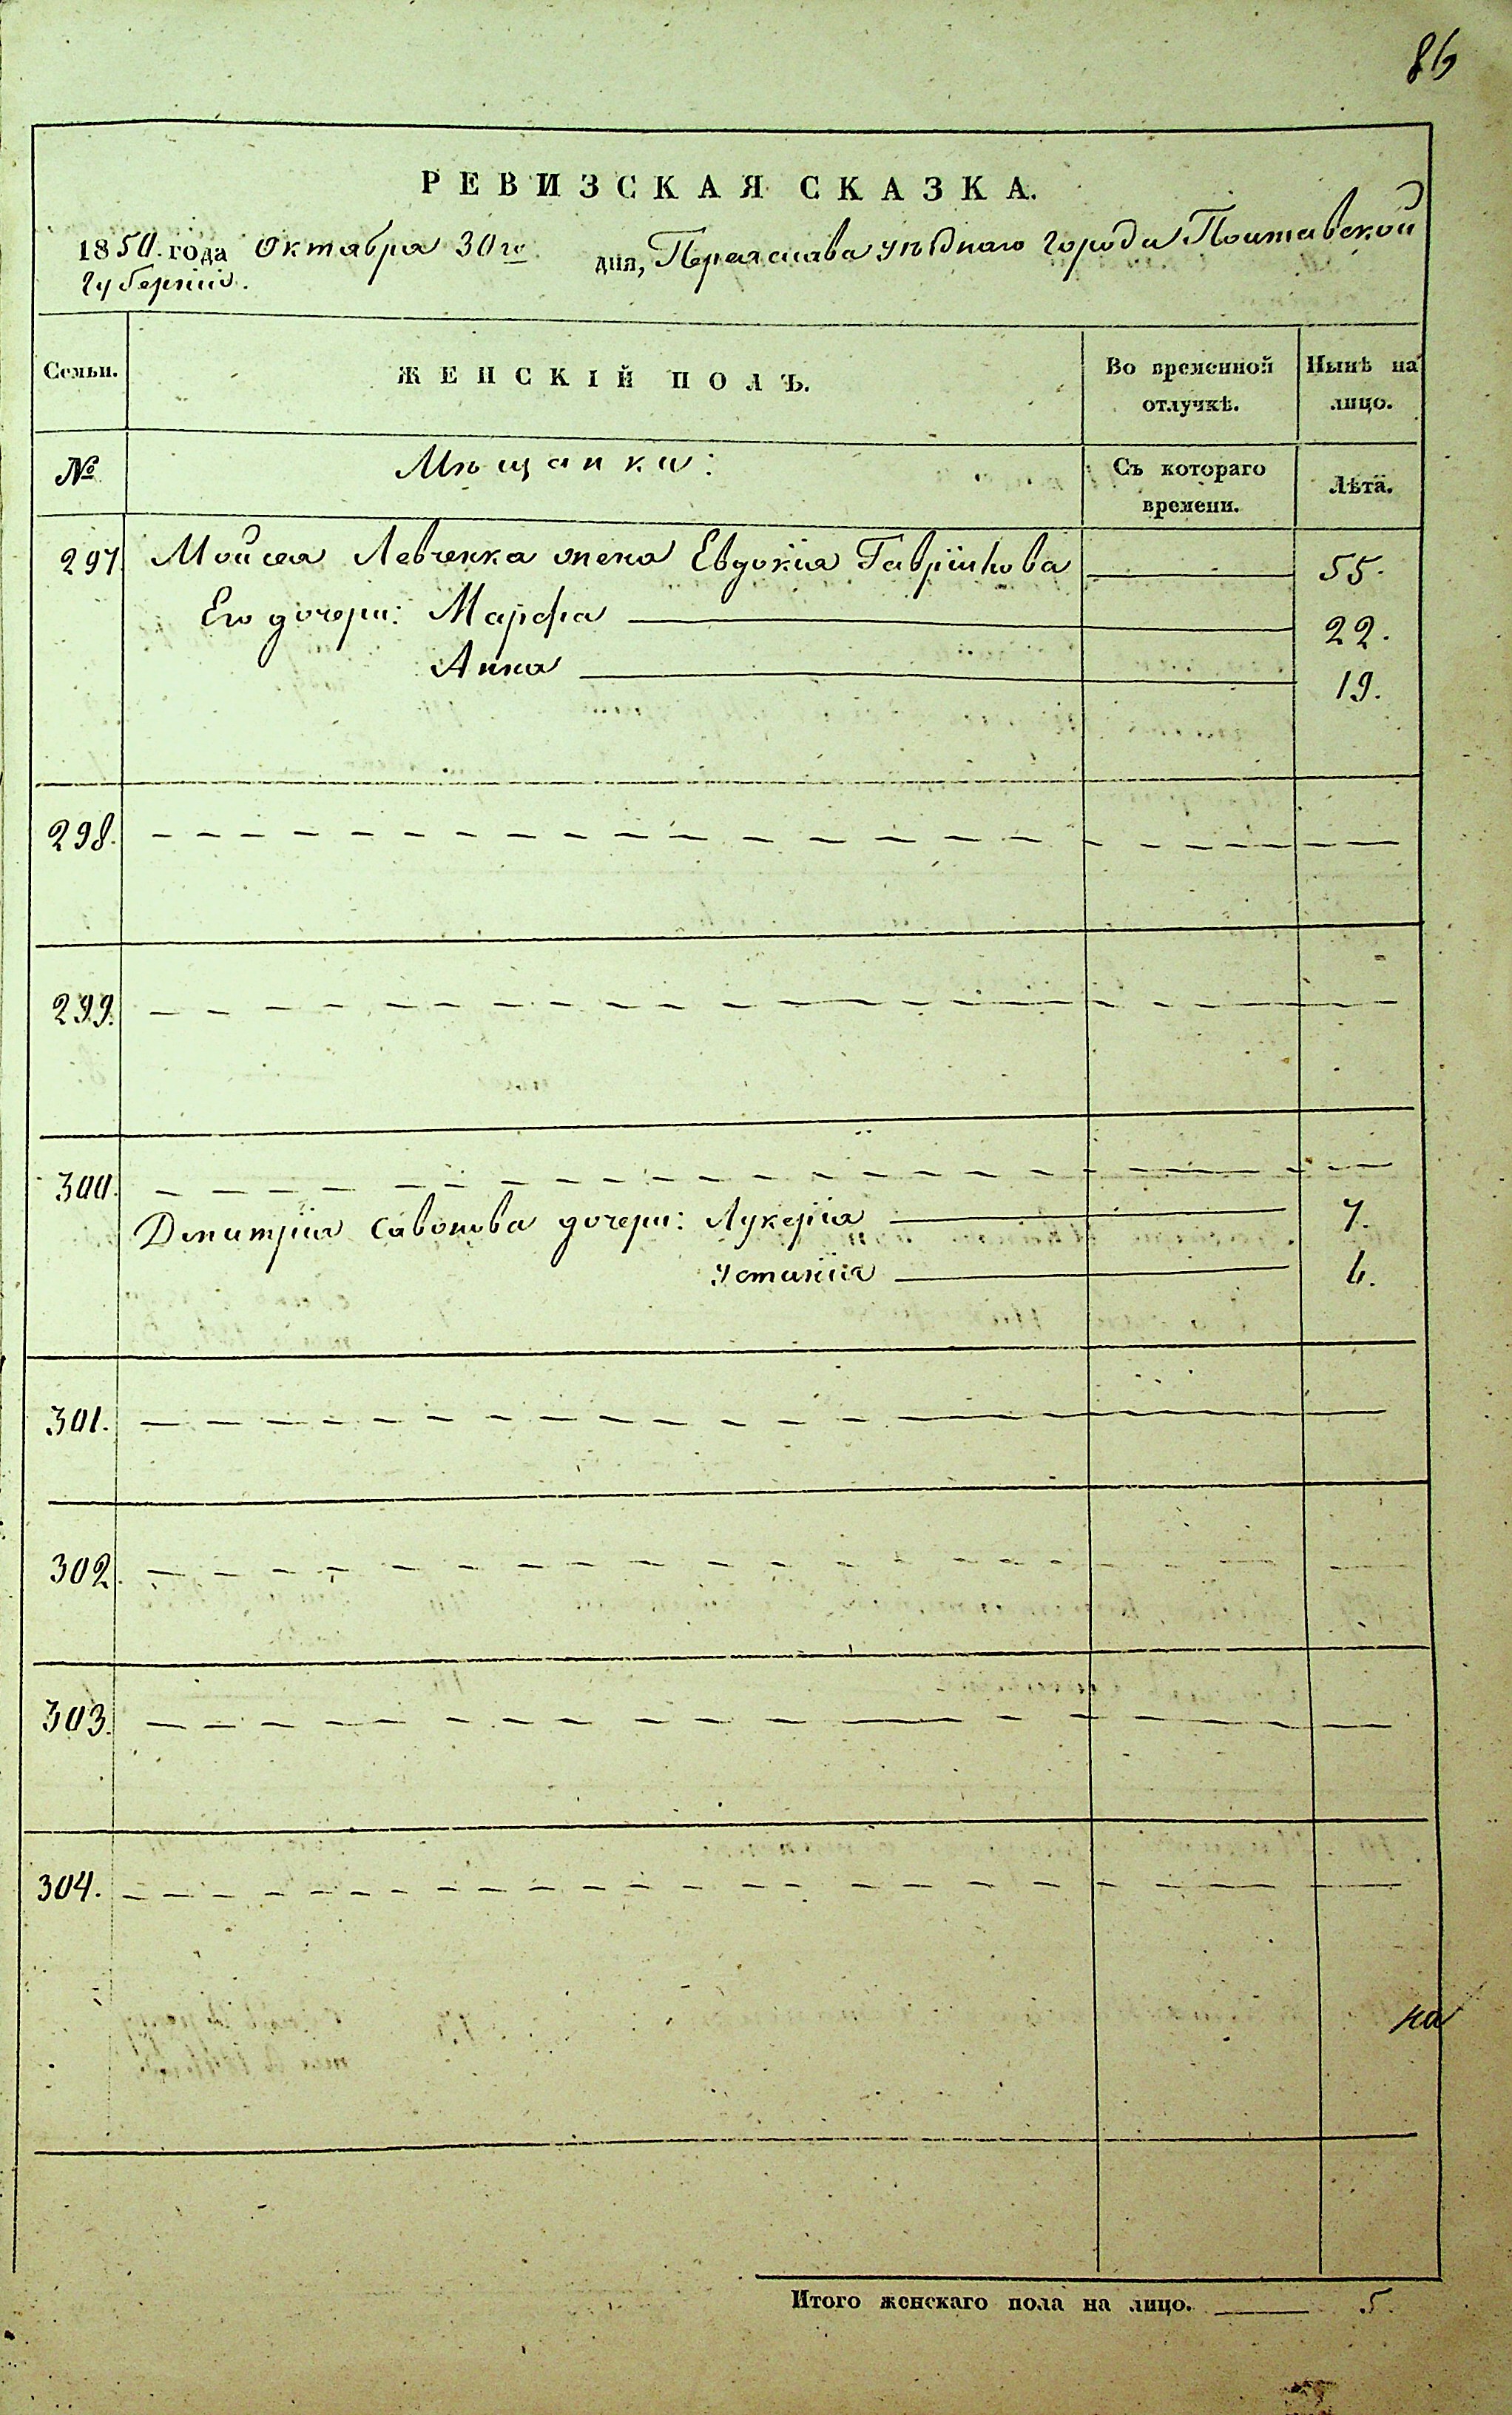 86
РЕВИЗСКАЯ СКАЗКА.
1850. года Октября 30го дня, Переяслава уѣзднаго города Полтавской
Губерніи.
Семьи. ЖЕНСКІЙ ПОЛЪ. Во временной отлучкѣ. Нынѣ на лицо.
№ Мѣщанки: Съ котораго времени. Лѣта.
297. Мойсея Левченка жена Евдокія Гавріилова 55.
Его дочери: Марфа 22.
Анна 19.
298.
299.
300.
Дмитрія Савонова дочери: Лукерія 7.
Устинія 6.
301.
302.
303.
304.
на
Итого женскаго пола на лицо. 5.